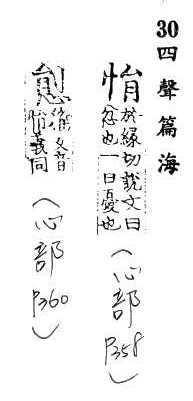 30 四聲篇海
悁 於緣切說文曰
忿也一曰憂也
(心部 P358)
籀文音
悁義同
(心部 P360)